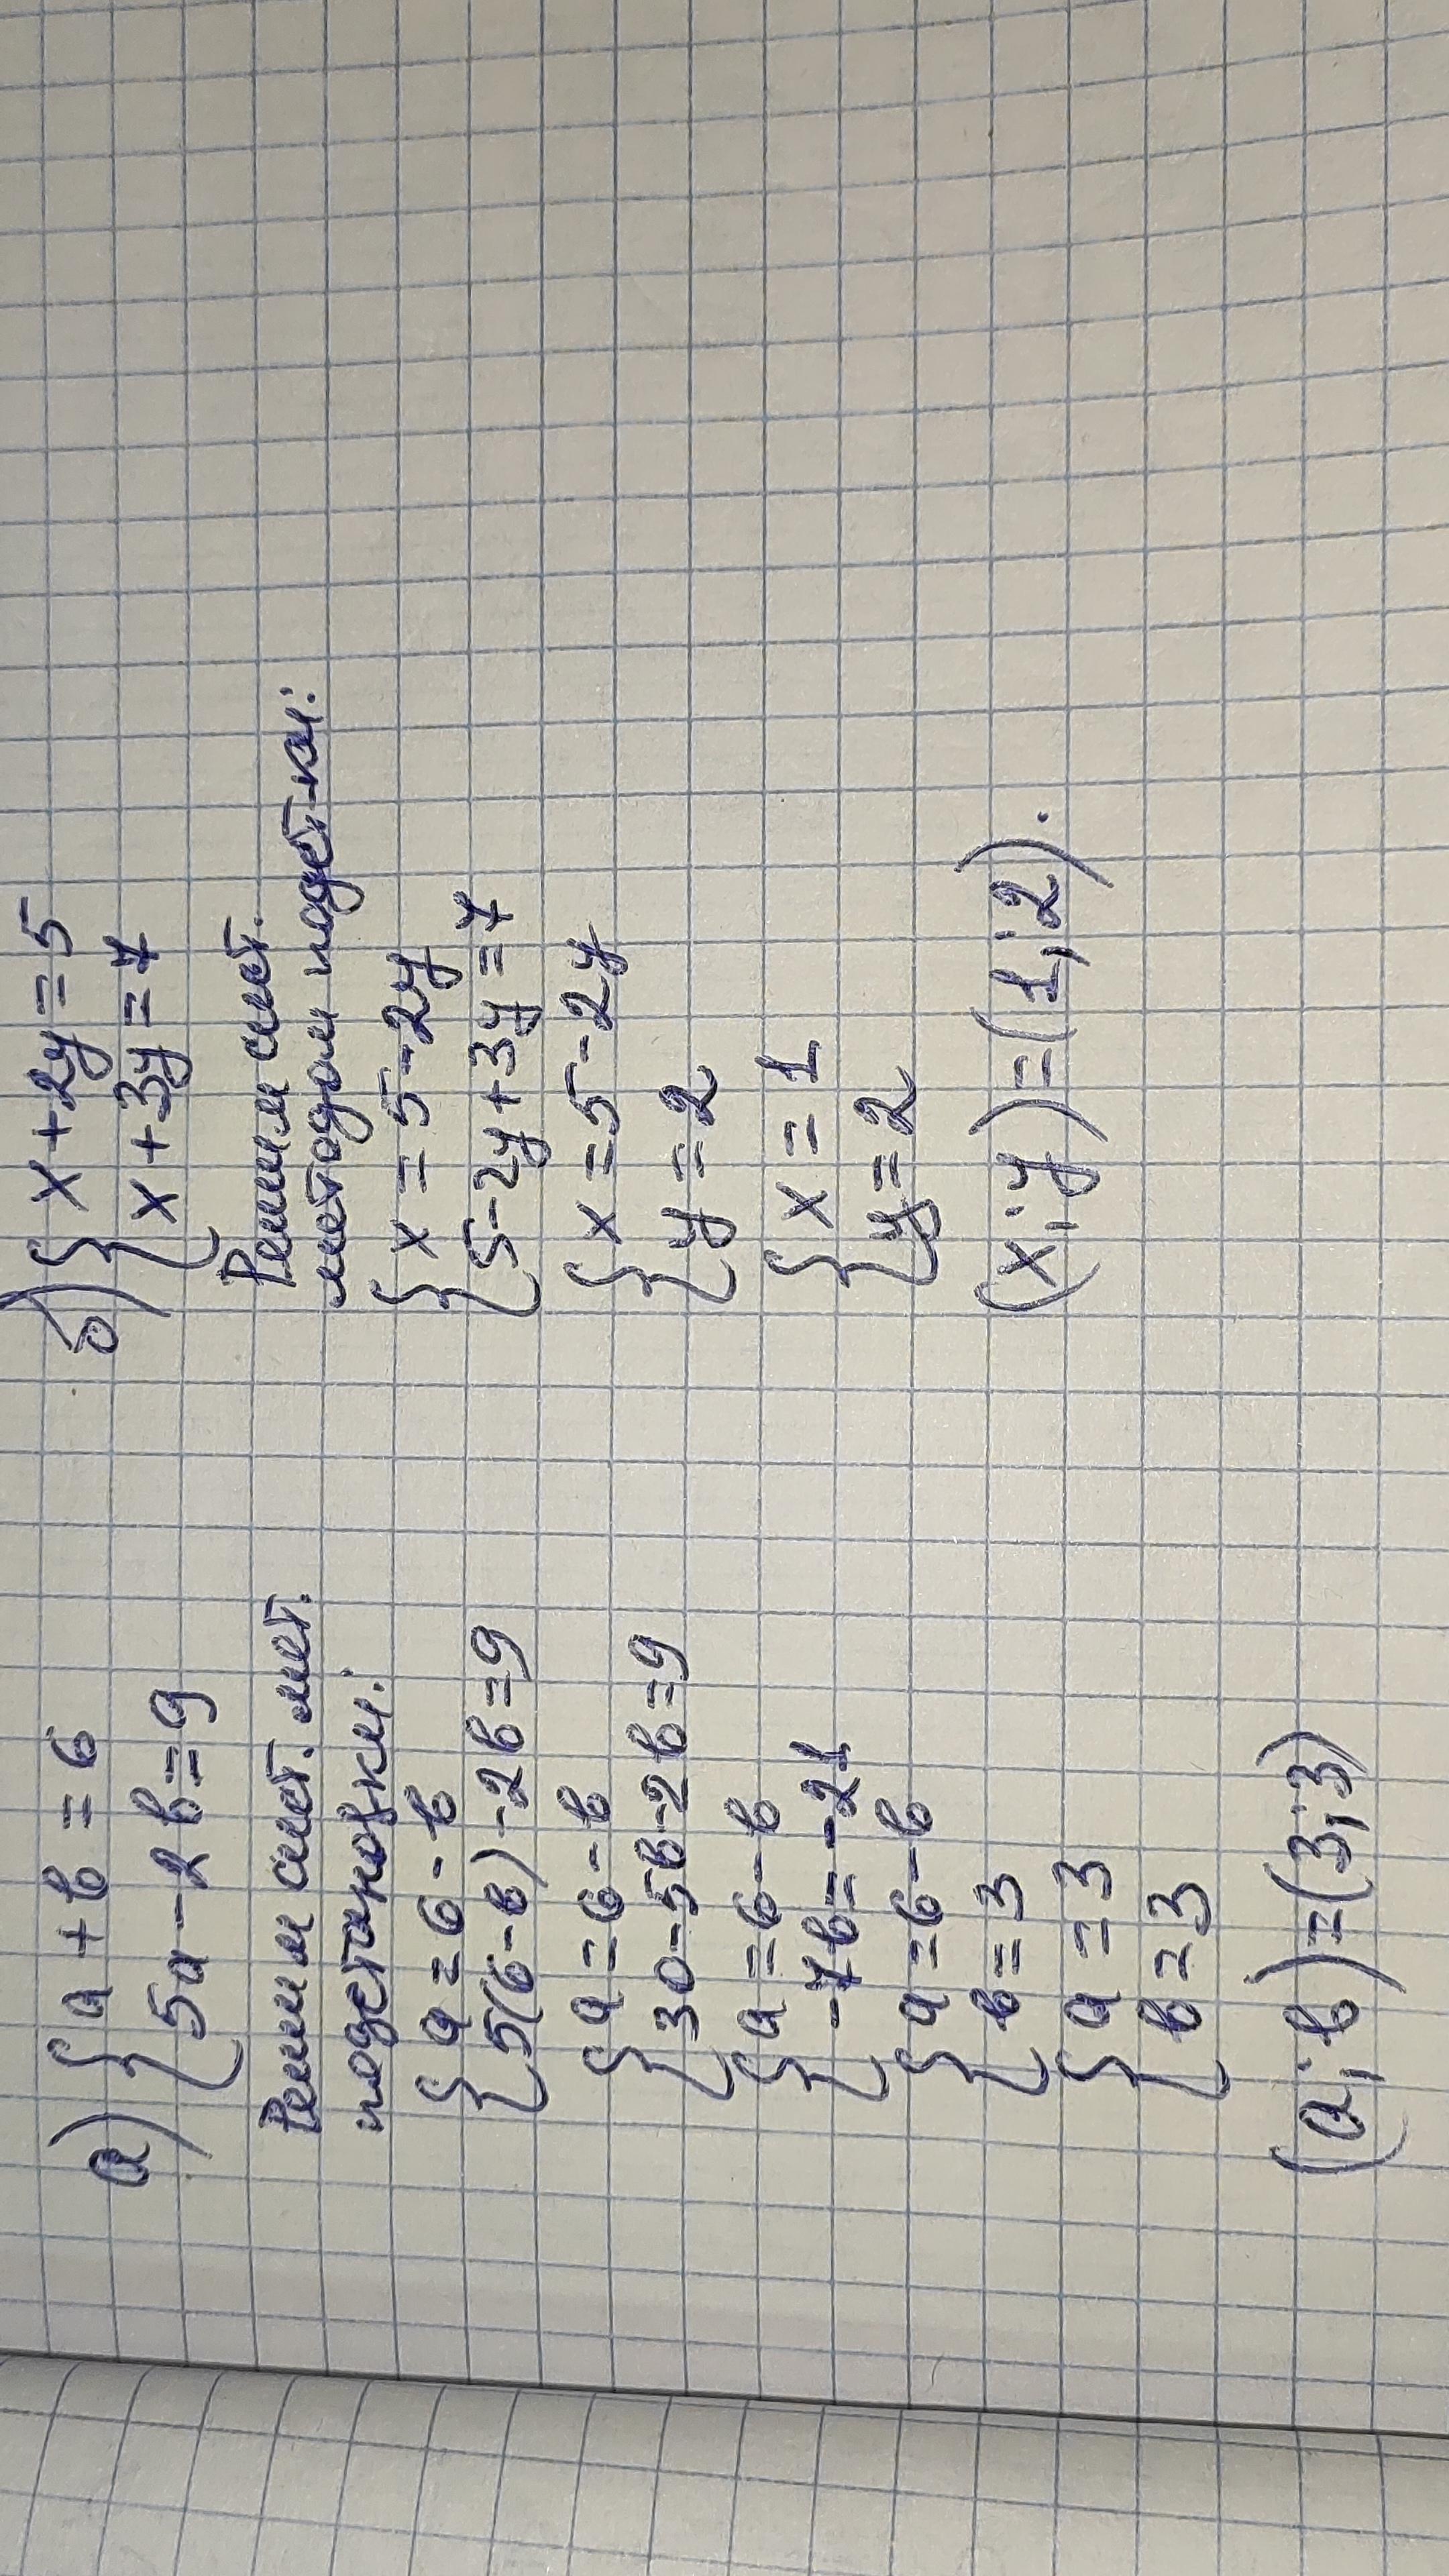 а) { a + b = 6
5a - 2b = 9
Решим сист. мет.
подстановки:
{ a = 6 - b
5(6 - b) - 2b = 9
{ a = 6 - b
30 - 5b - 2b = 9
{ a = 6 - b
-7b = -21
{ a = 6 - b
b = 3
{ a = 3
b = 3
(a; b) = (3; 3)
б) { x + 2y = 5
x + 3y = 7
Решим сист.
методом подст-ки:
{ x = 5 - 2y
5 - 2y + 3y = 7
{ x = 5 - 2y
y = 2
{ x = 1
y = 2
(x; y) = (1; 2).